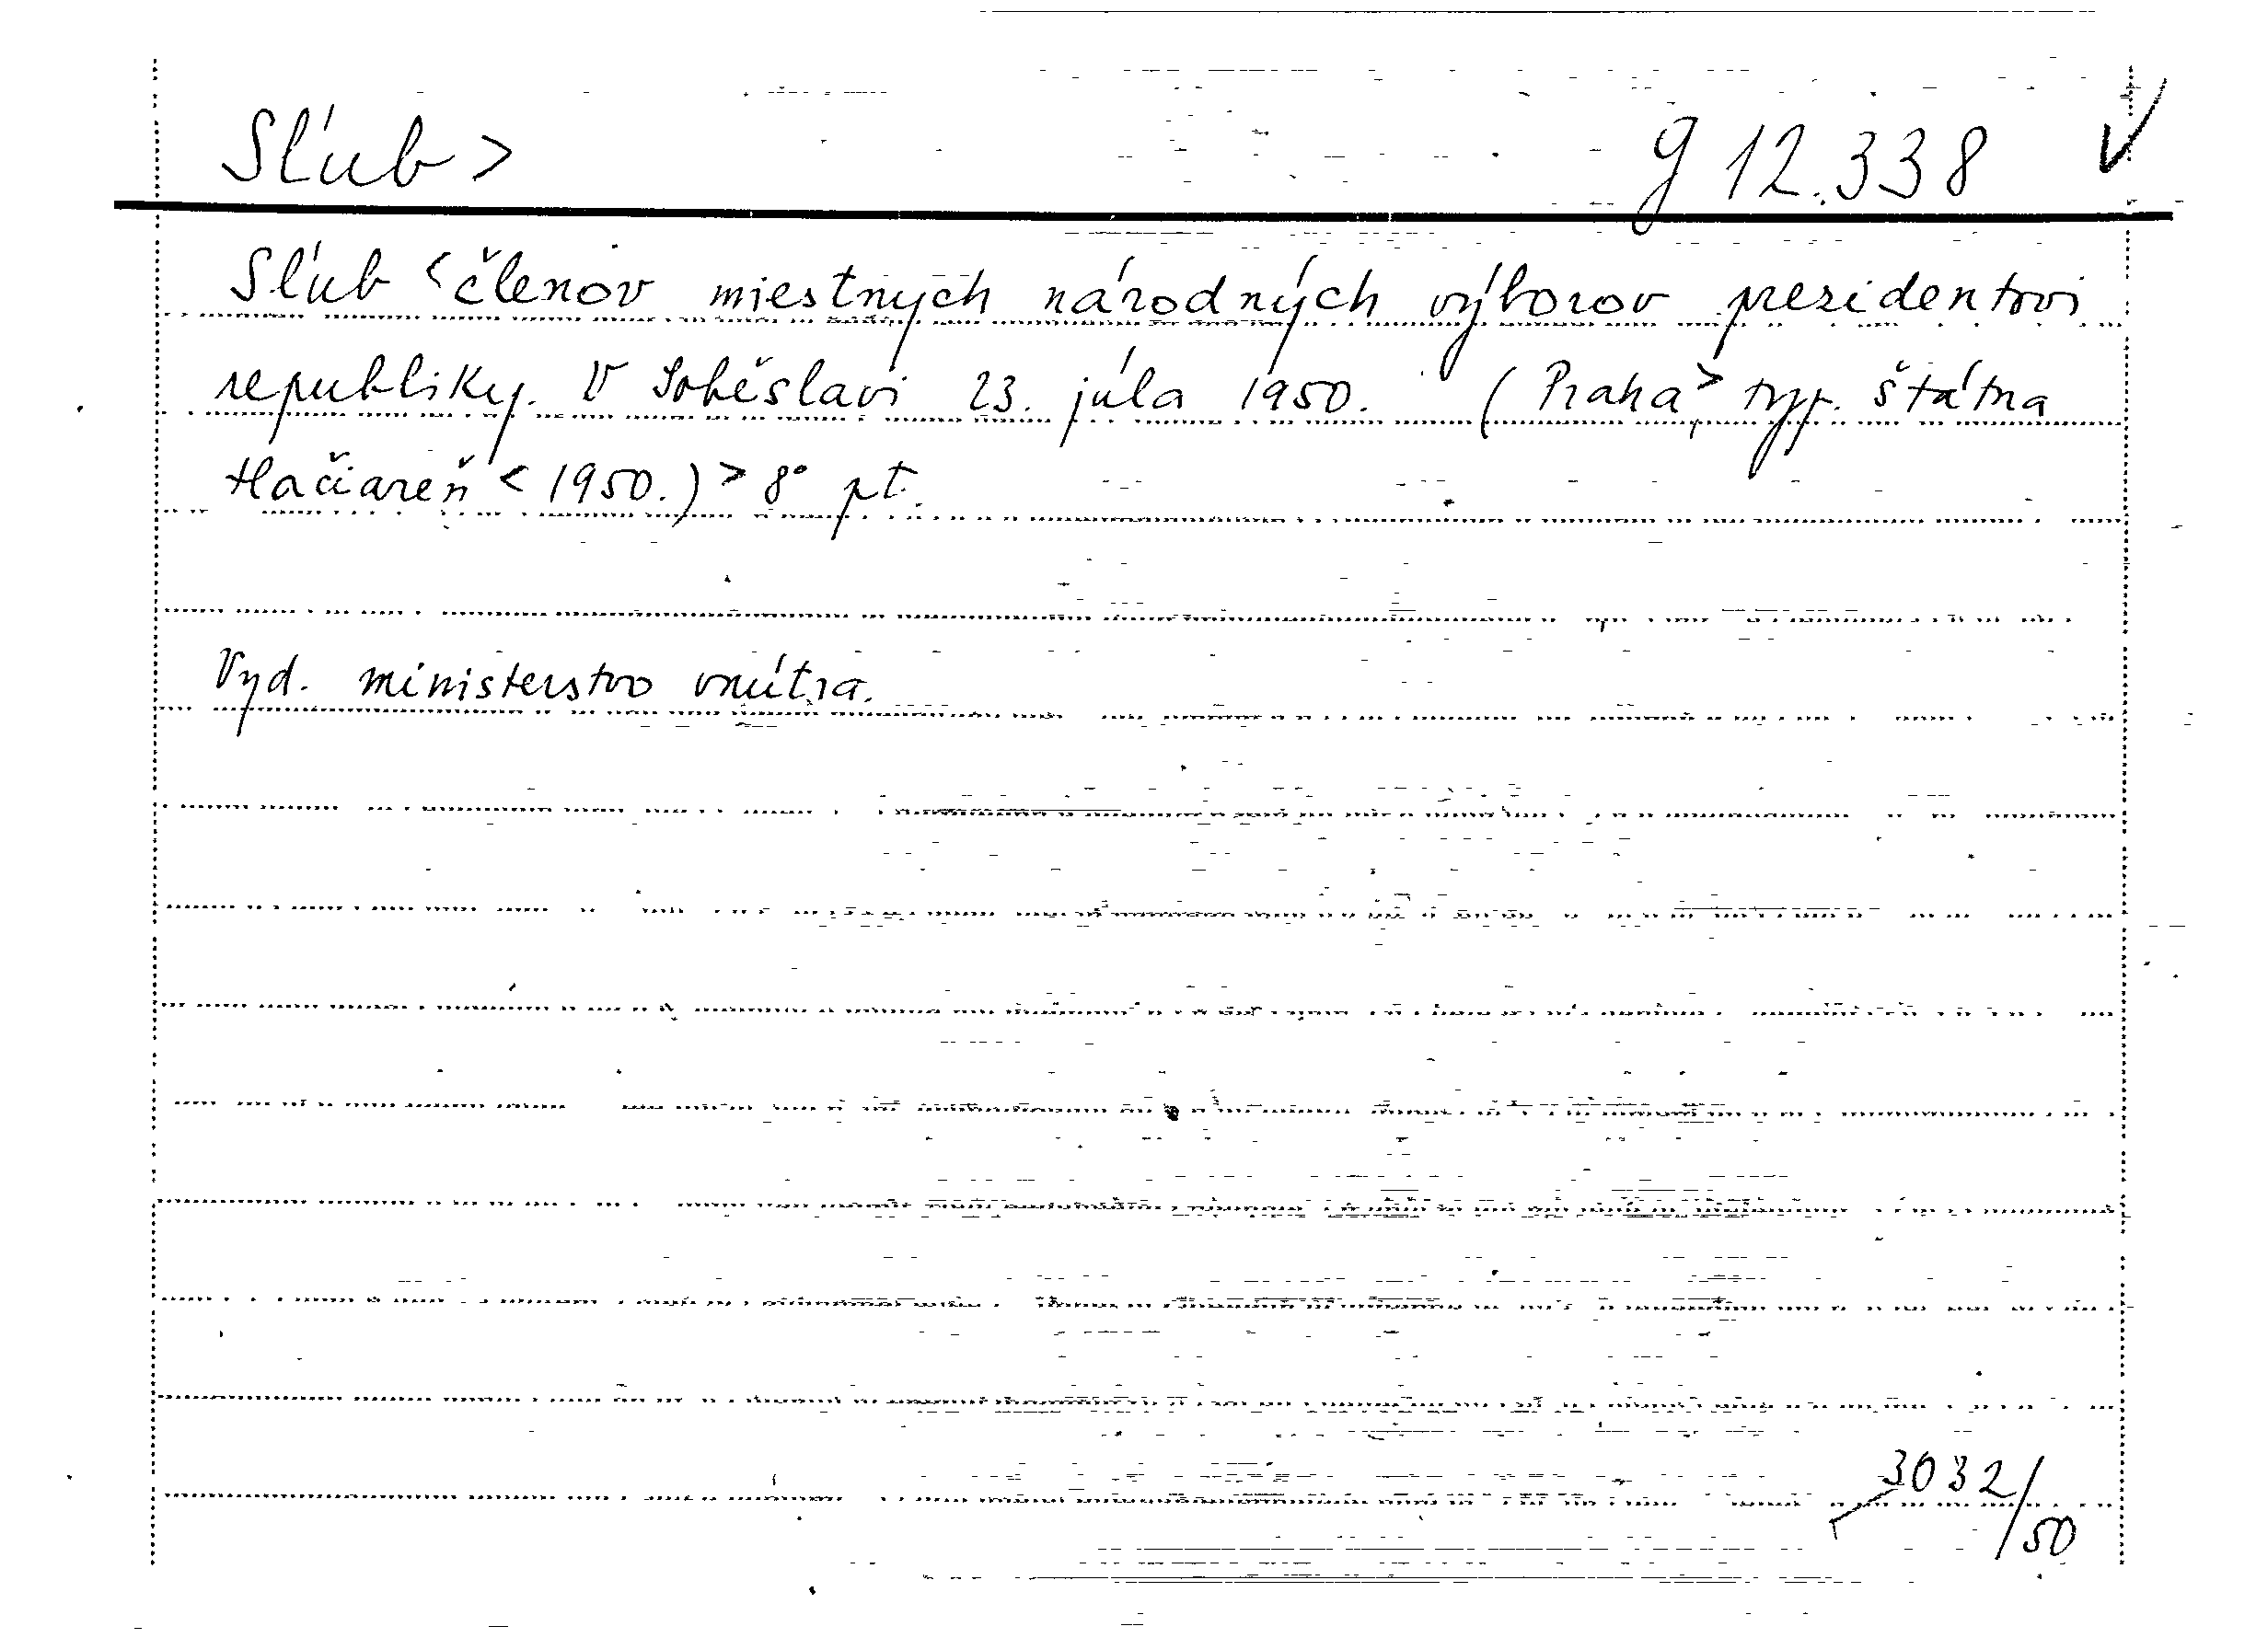 Sľub > g 12.338 V
Sľub < členov miestnych národných výborov prezidentovi
republiky. V Soběslavi 23. júla 1950. (Praha, > typ. štátna
tlačiareň < 1950.) > 8° pt.
Vyd. ministerstvo vnútra.
3032/50